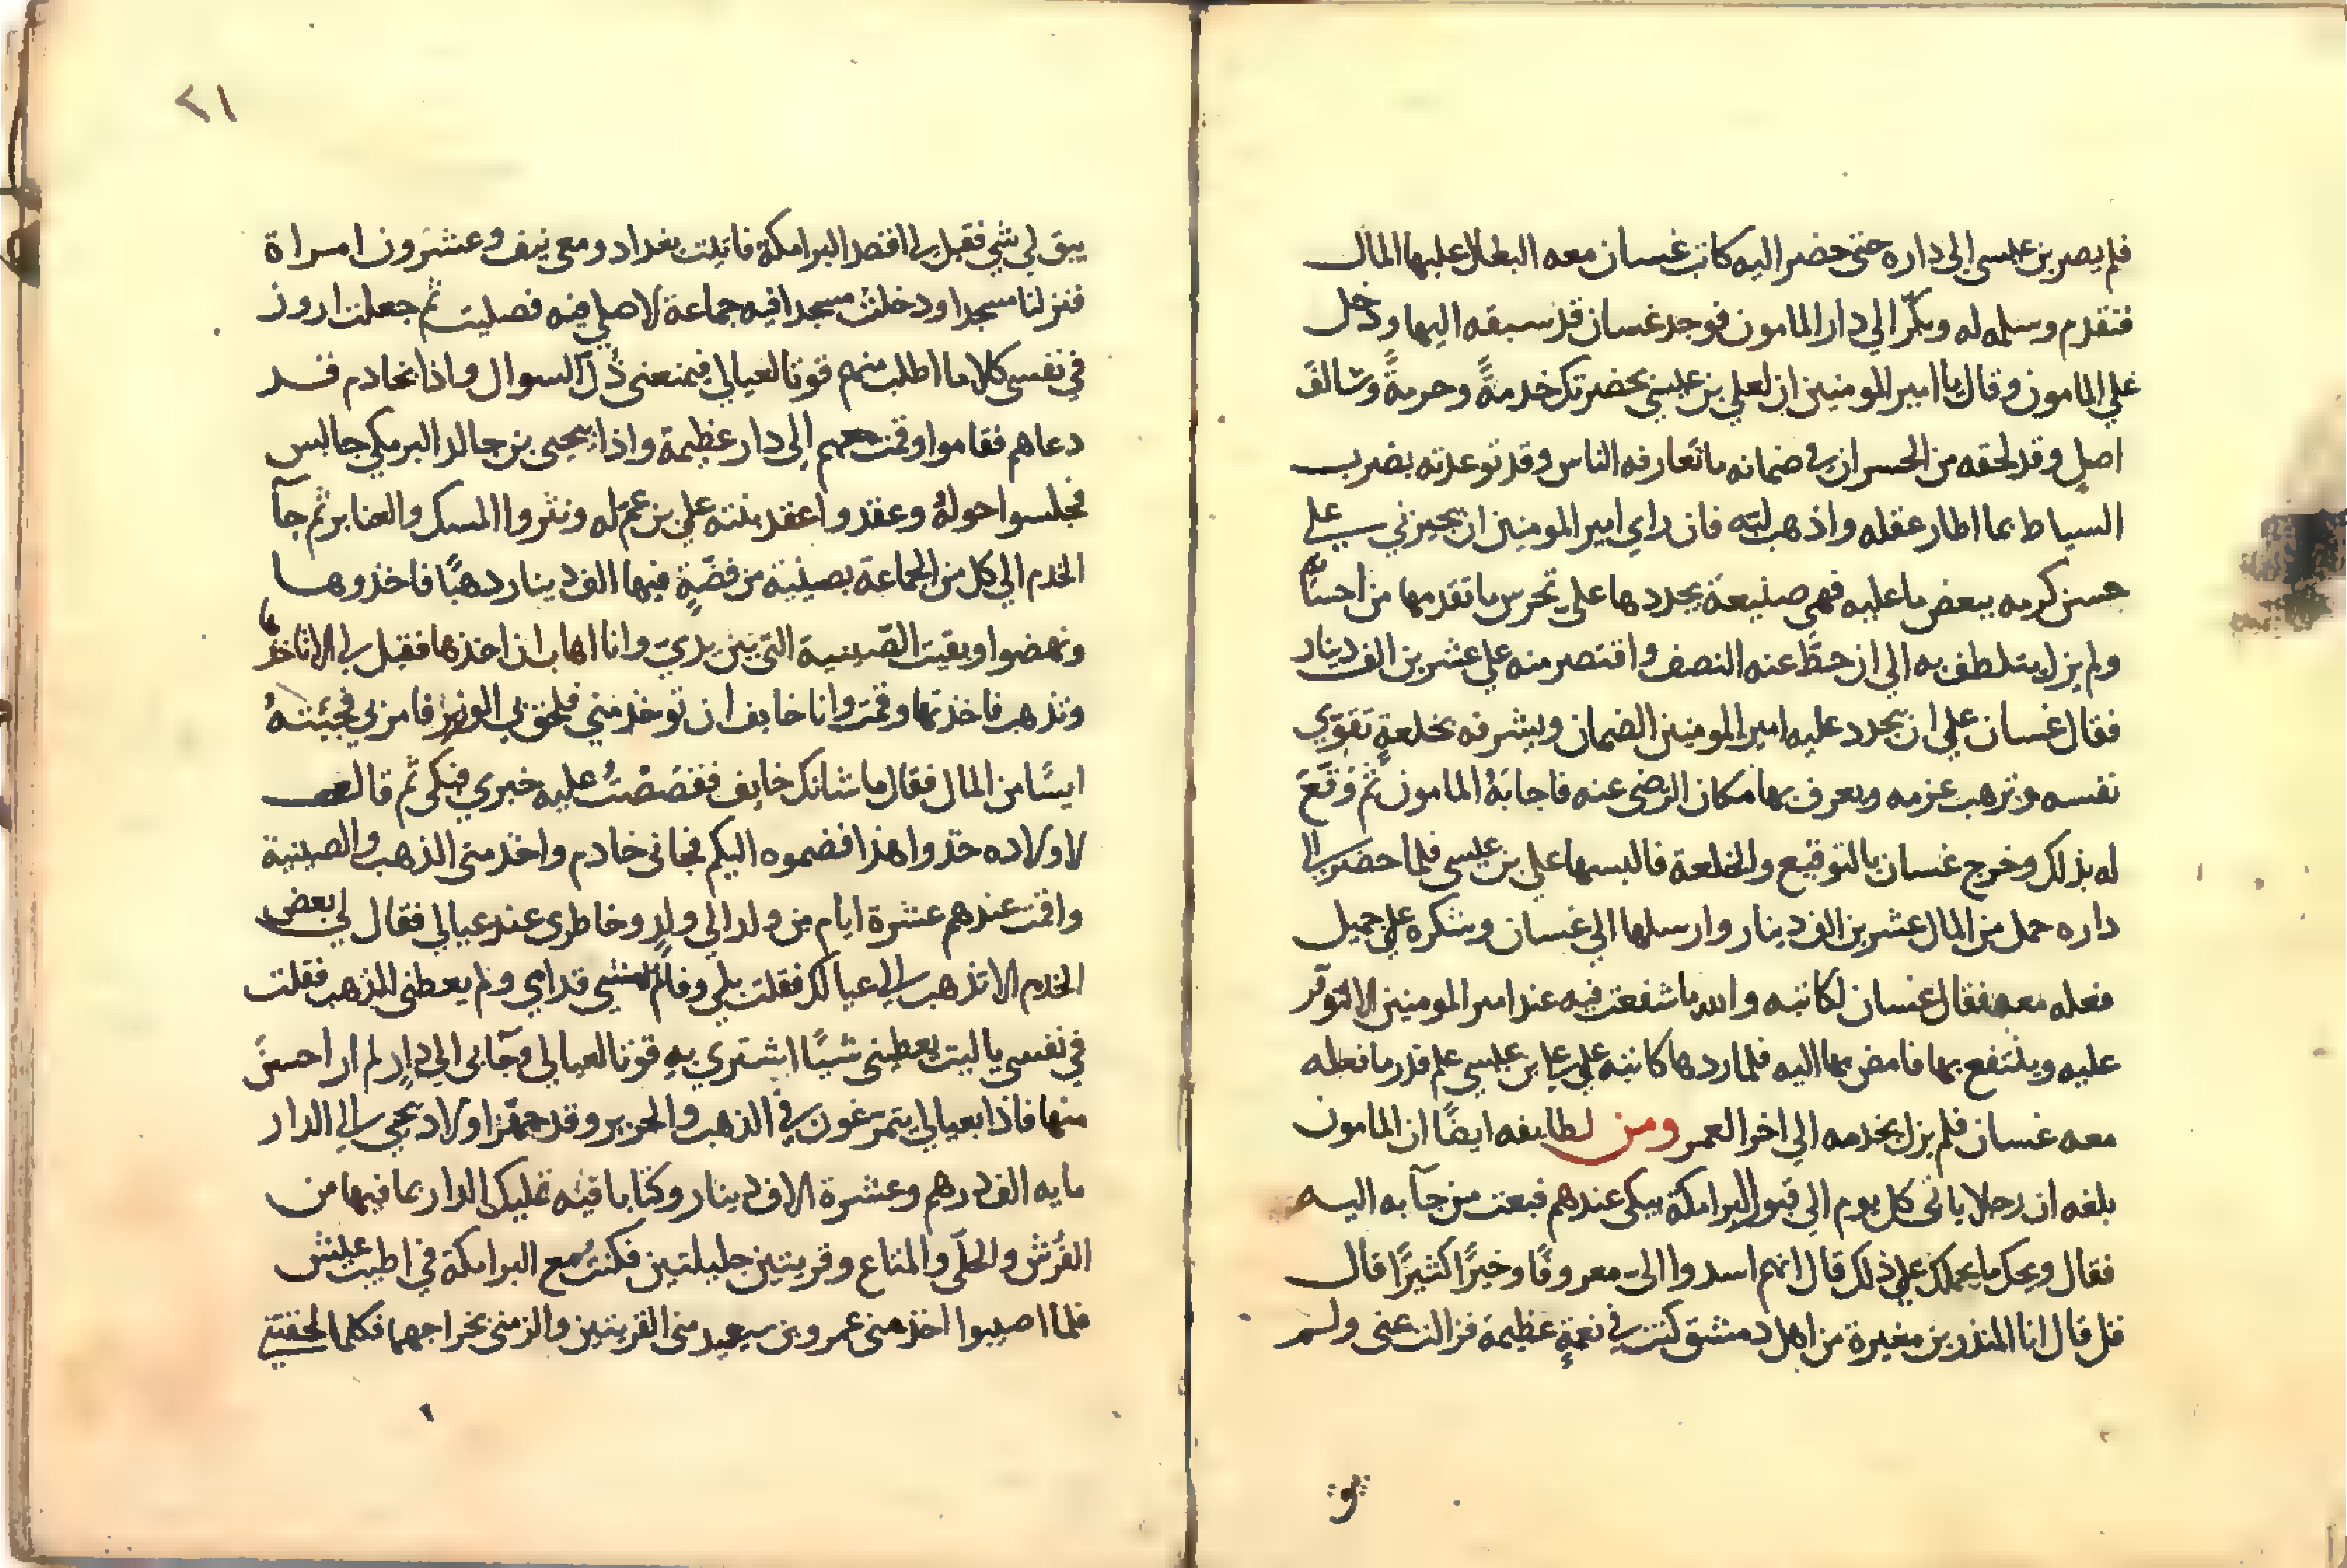 فلم يصر بن عيسى الى داره حتى حضر اليه كاتب غسان معه البغال عليها المال
فتقدم وسلمه له وبكّر الي دار المامون فوجد غسان قد سبقه اليها ودخل
علي المامون وقال يا امير المومنين ان لعلي بن عيسى بحضرتك خدمةً وحرمةً وسالف
اصلٍ وقد لحقه من الخسران في ضمانه ما تعارفه الناس وقد توعدته بضرب
السياط بما اطار عقله واذهب لبّه فان راي امير المومنين ان يجيزني علي
حسن كرمه ببعض ما عليه فهي صنيعة يجددها علي تحرس ما تقدمها من احسانه
ولم يزل يتلطف به الي ان حطّ عنه النصف واقتصر منه علي عشرين الف دينار
فقال غسان علي ان يجدد عليه امير المومنين الضمان ويشرفه بخلعةٍ تقوّي
نفسه وترهب عزمه ويعرف بها مكان الرضى عنه فاجابهُ المامون ثم وقّع
له بذلك وخرج غسان بالتوقيع والخلعة فالبسها علي بن عيسى فلما حضر الى
داره حمل من المال عشرين الف دينار وارسلها الي غسان وشكره علي جميل
فعله معه فقال غسان لكاتبه والله ما شفعت فيه عند امير المومنين الا لتوفر
عليه وينتفع بها فامض بها اليه فلما ردها كاتبه علي علي بن عيسى علم قدر ما فعله
معه غسان فلم يزل يخدمه الي اخر العمر ومن لطايفه ايضًا ان المامون
بلغه ان رجلا ياتى كل يوم الي قبور البرامكة يبكى عندهم فبعث من جآ به اليه
فقال ويحك ما يحملك علي ذلك قال انهم اسدوا اليّ معروفًا وخيرًا كثيرًا قال
قل قال انا المنذر بن مغيرة من اهل دمشق كنت في نعمةٍ عظيمة فزالت عنى ولم
يو
٢١
يبق لي شي فقيل لي اقصد البرامكة فاتيت بغداد ومعي نيف وعشرون امراة
فنزلنا مسجدا ودخلت مسجدا فيه جماعة لاصلي فيه فصليت ثم جعلت اروز
في نفسى كلاما اطلب منهم قوتا لعيالي فيمنعنى ذُل السوال واذا بخادم قد
دعاهم فقاموا وقمت معهم الى دار عظيمة واذا يحيى بن خالد البرمكي جالس
فجلسوا حولهُ وعقدوا عقد بنته علي بن عم له ونثروا المسك والعنابر ثم جآ
الخدم الي كل من الجماعة بصينية من فضّةٍ فيها الف دينار دهبًا فاخذوها
ونهضوا وبقيت الصّينية التى بين يديّ وانا اهاب ان اخذها فقيل لي الا تاخذها
وتذهب فاخذتها وقمت وانا خايف ان توخذ مني فلحق بي الوزير فامر بي فجيتهُ
ايسًا من المال فقال ما شانك خايف فقصَصْتُ عليه خبري فبكى ثم قال
لاولاده خذوا هذا فضموه اليكم فجانى خادم واخذ منى الذهب والصينية
واقمت عندهم عشرة ايام من ولد الي ولدٍ وخاطرى عند عيالي فقال لي بعض
الخدم الا تذهب الي عيالك فقلت بلي وقام يمشى قدامي ولم يعطنى الذهب فقلت
في نفسى يا ليت يعطينى شيًا اشتري بهِ قوتا لعيالي وجآ بى الي دارٍ لم ار احسنَ
منها فاذا بعيالي يتمرّغون في الذهب والحرير وقد جهّز اولاد يحيى الي الدار
مايه الف درهم وعشرة الاف دينار وكتابا فيه تمليك الدار بما فيها من
الفُرُش والحلّى والمتاع وقريتين جليلتين فكنتُ مع البرامكة في اطيب عيش
فلما اصيبوا اخذ منى عمرو بن سعيد منى القريتين والزمنى بخراجهما فكلما لحقتنى